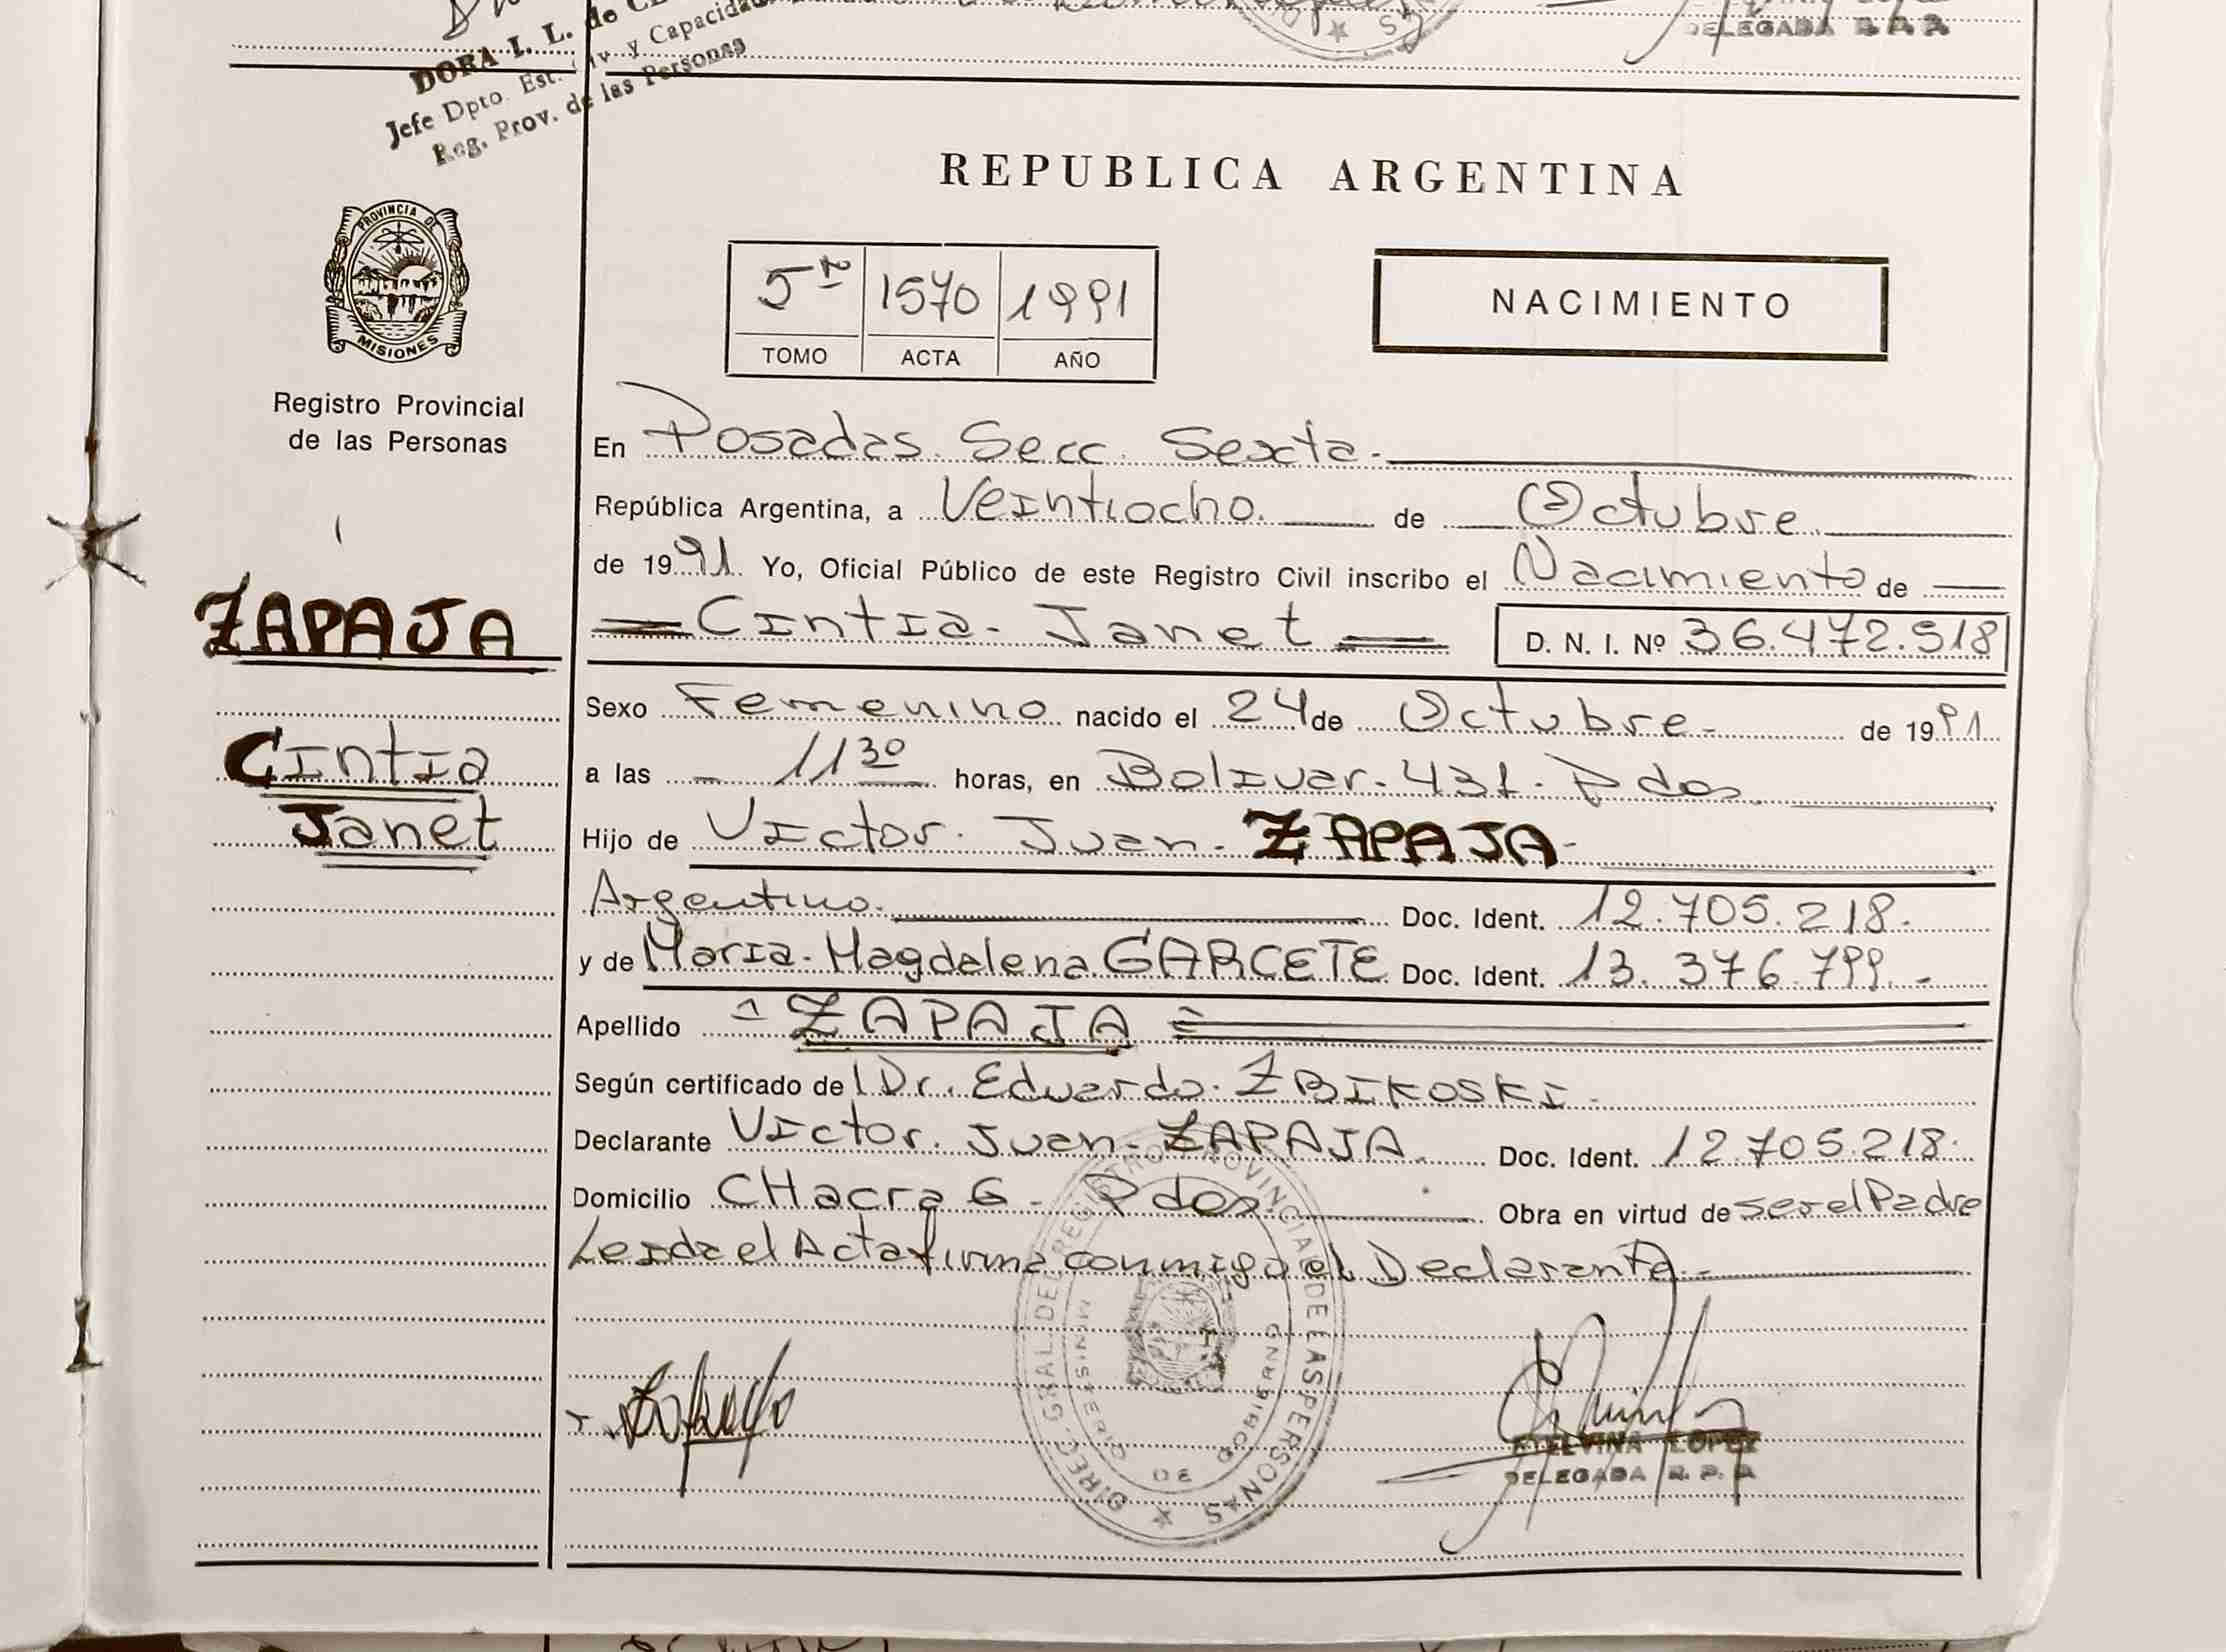 DORA I. L. de
Jefe Dpto. Est. Civ. y Capacidad
Reg. Prov. de las Personas
DELEGADA R. P. P.
REPUBLICA ARGENTINA
PROVINCIA DE
MISIONES
Registro Provincial
de las Personas
5º 1570 1991
TOMO ACTA AÑO
NACIMIENTO
En Posadas. Secc. Sexta.
República Argentina, a Veintiocho. de Octubre.
de 1991. Yo, Oficial Público de este Registro Civil inscribo el Nacimiento de
Cintia. Janet D. N. I. Nº 36.472.518
ZAPAJA
Cintia
Janet
Sexo Femenino nacido el 24 de Octubre. de 1991.
a las 11 30 horas, en Bolivar. 431. Pdas.
Hijo de Victor. Juan. ZAPAJA.
Argentino. Doc. Ident. 12.705.218.
y de Maria. Magdalena GARCETE Doc. Ident. 13.376.799.
Apellido ZAPAJA
Según certificado del Dr. Eduardo. ZBIKOSKI.
Declarante Victor. Juan. ZAPAJA. Doc. Ident. 12.705.218.
Domicilio CHacra 6. Pdas. Obra en virtud de ser el Padre
Leida el Acta firma conmigo el Declarante.
DIREC. GRAL. DEL REGISTRO PROVINCIAL DE LAS PERSONAS
MINISTERIO DE GOBIERNO
ETELVINA LOPEZ
DELEGADA R. P. P.